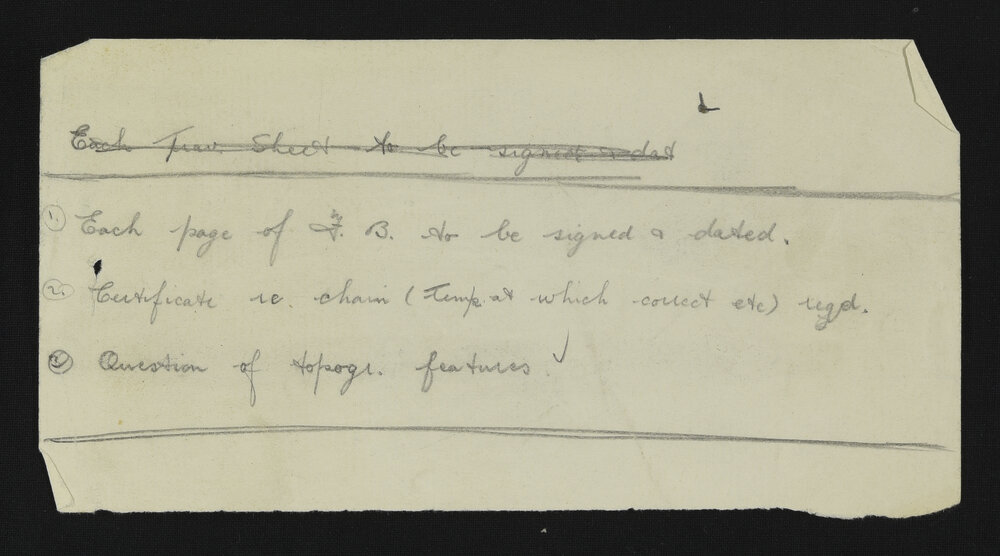 Each Trav. Sheet to be signed & dat
1. Each page of F. B. to be signed & dated.
2. Certificate re. chain (Temp. at which correct etc) reqd.
3 Question of topogr. features ✓